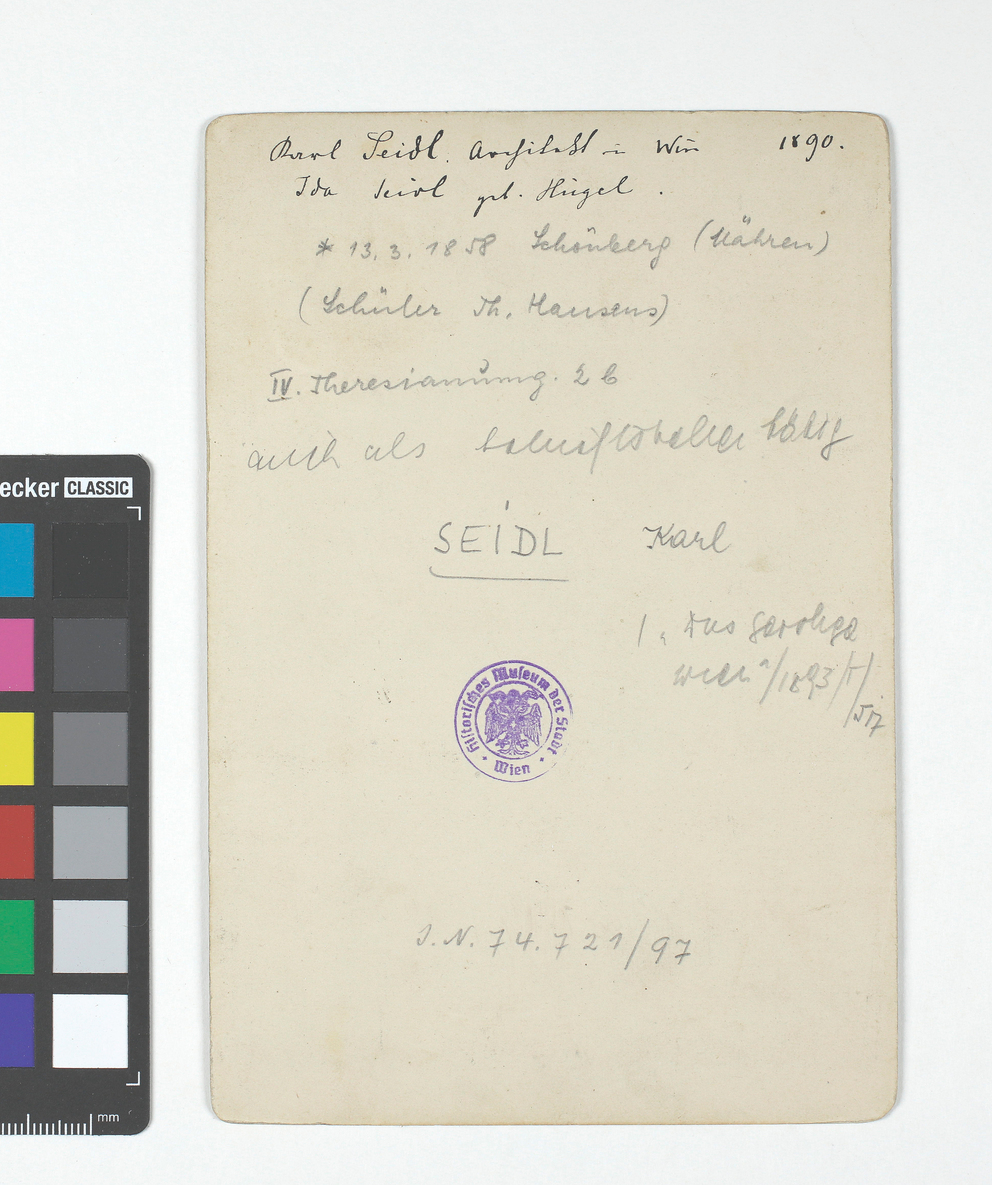 Karl Seidl. Architekt in Wien 1890.
Ida Seidl geb. Hügel.
* 13. 3. 1858 Schönberg (Mähren)
(Schüler Th. Hansens)
IV. Theresianumg. 26
auch als Schriftsteller tätig
SEIDL Karl
1, "Das geistige
Wien"/1893/I/
517
Historisches Museum der Stadt Wien
I.N. 74.721/97
ecker CLASSIC
mm